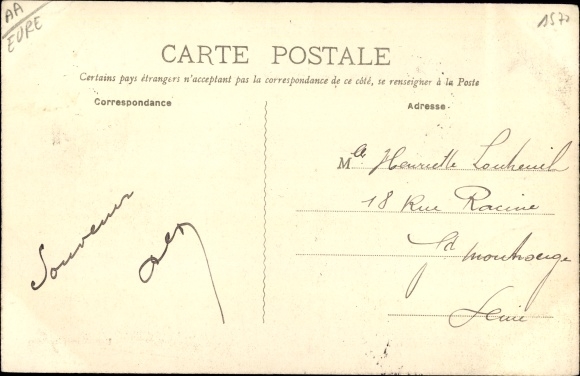 AA
EURE
1570
CARTE POSTALE
Certains pays étrangers n'acceptant pas la correspondance de ce côté, se renseigner à la Poste
Correspondance
Adresse
Mlle Henriette
18 Rue Racine
Gd Montrouge
Seine
Souvenir